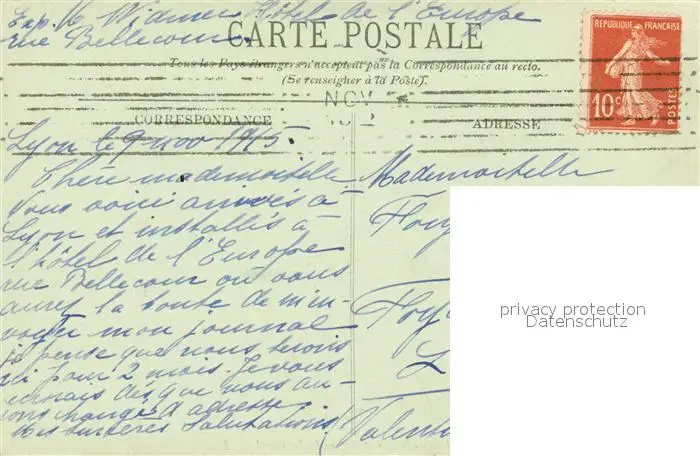 Exp. M. Widmer Hôtel de l'Europe
rue Bellecour.
CARTE POSTALE
Tous les Pays étrangers n'acceptent pas la Correspondance au recto.
(Se renseigner à la Poste).
REPUBLIQUE FRANÇAISE
10 c
POSTES
NOV
CORRESPONDANCE
ADRESSE
Lyon le 9 nov 1915.
Chère mademoiselle
Nous voici arrivés à
Lyon et installés à
l'hôtel de l'Europe
rue Bellecour où vous
aurez la bonté de m'en-
voyer mon journal
je pense que nous serons
ici pour 2 mois. Je vous
écrirais dès que nous au-
rons changés d'adresse.
Mes sincères Salutations.
Mademoiselle
Valen
privacy protection
Datenschutz